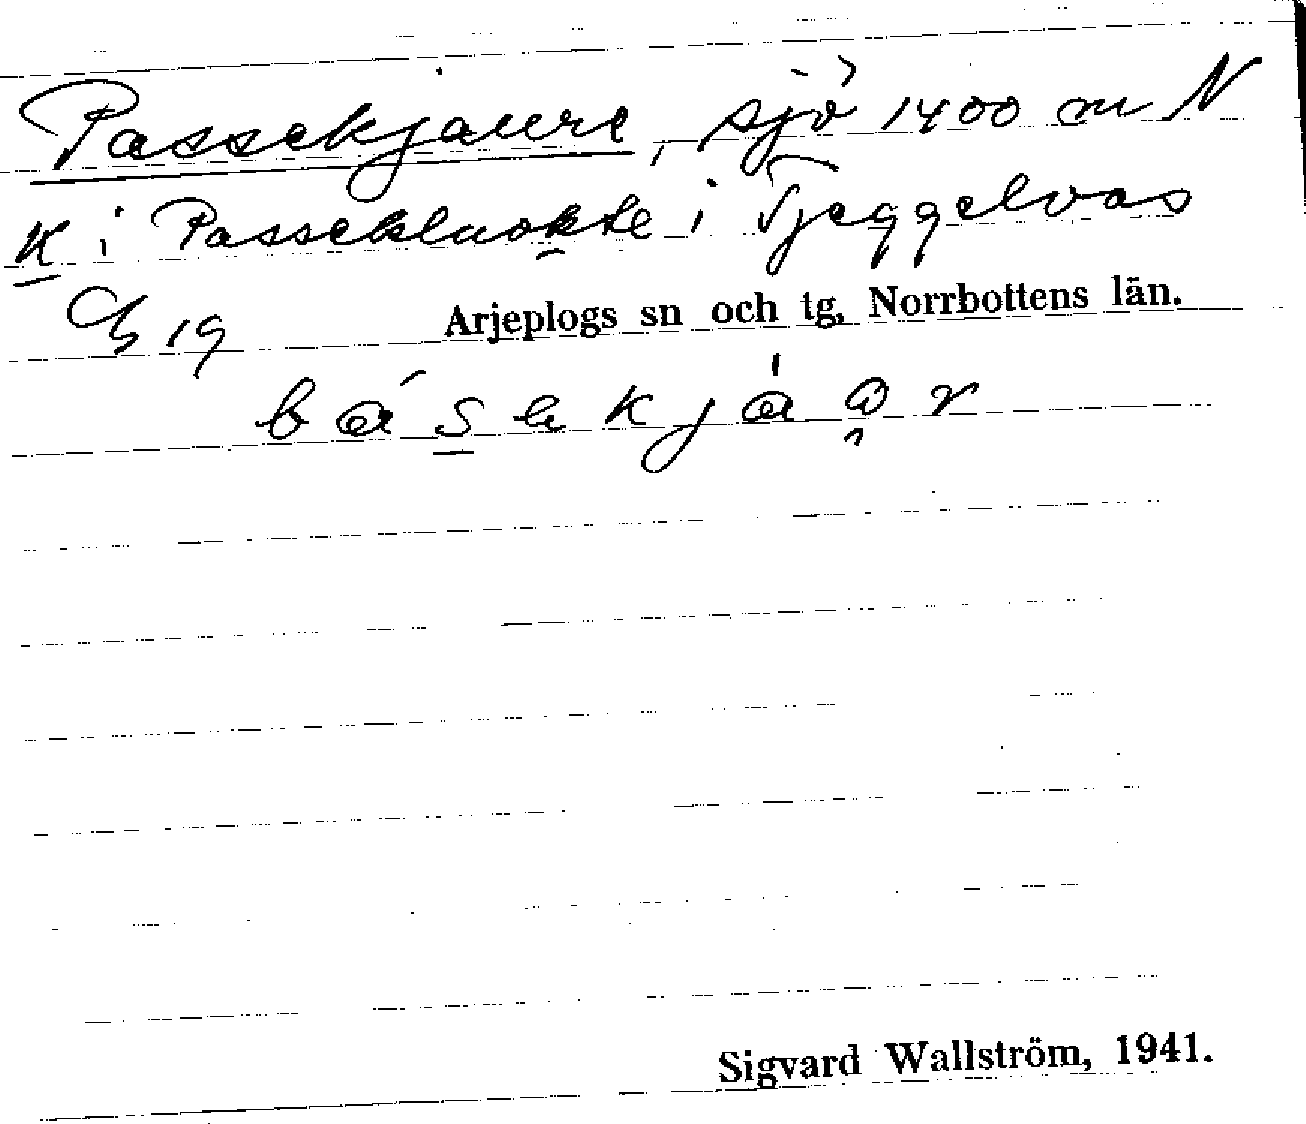 Passekjaure, sjö 1400 m N
K i Passekluokte i Tjeggelvas
Gb 19 Arjeplogs sn och tg, Norrbottens län.
Sigvard Wallström, 1941.